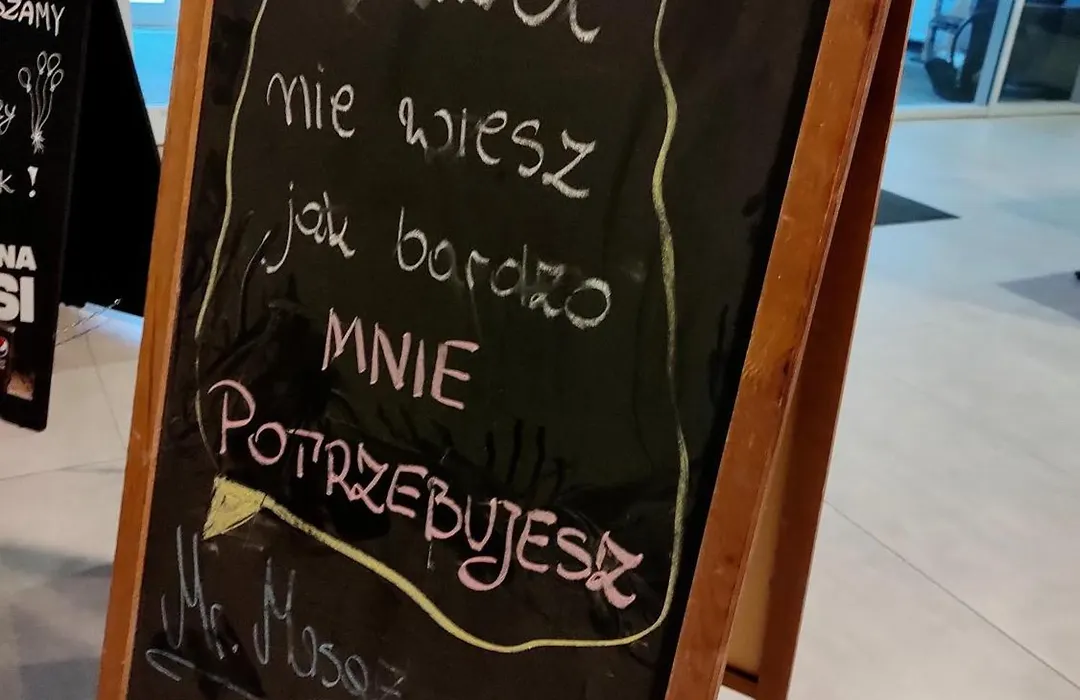 SZAMY
k!
NA
SI
nie wiesz
jak bardzo
MNIE
POTRZEBUJESZ
Mr. Masaż